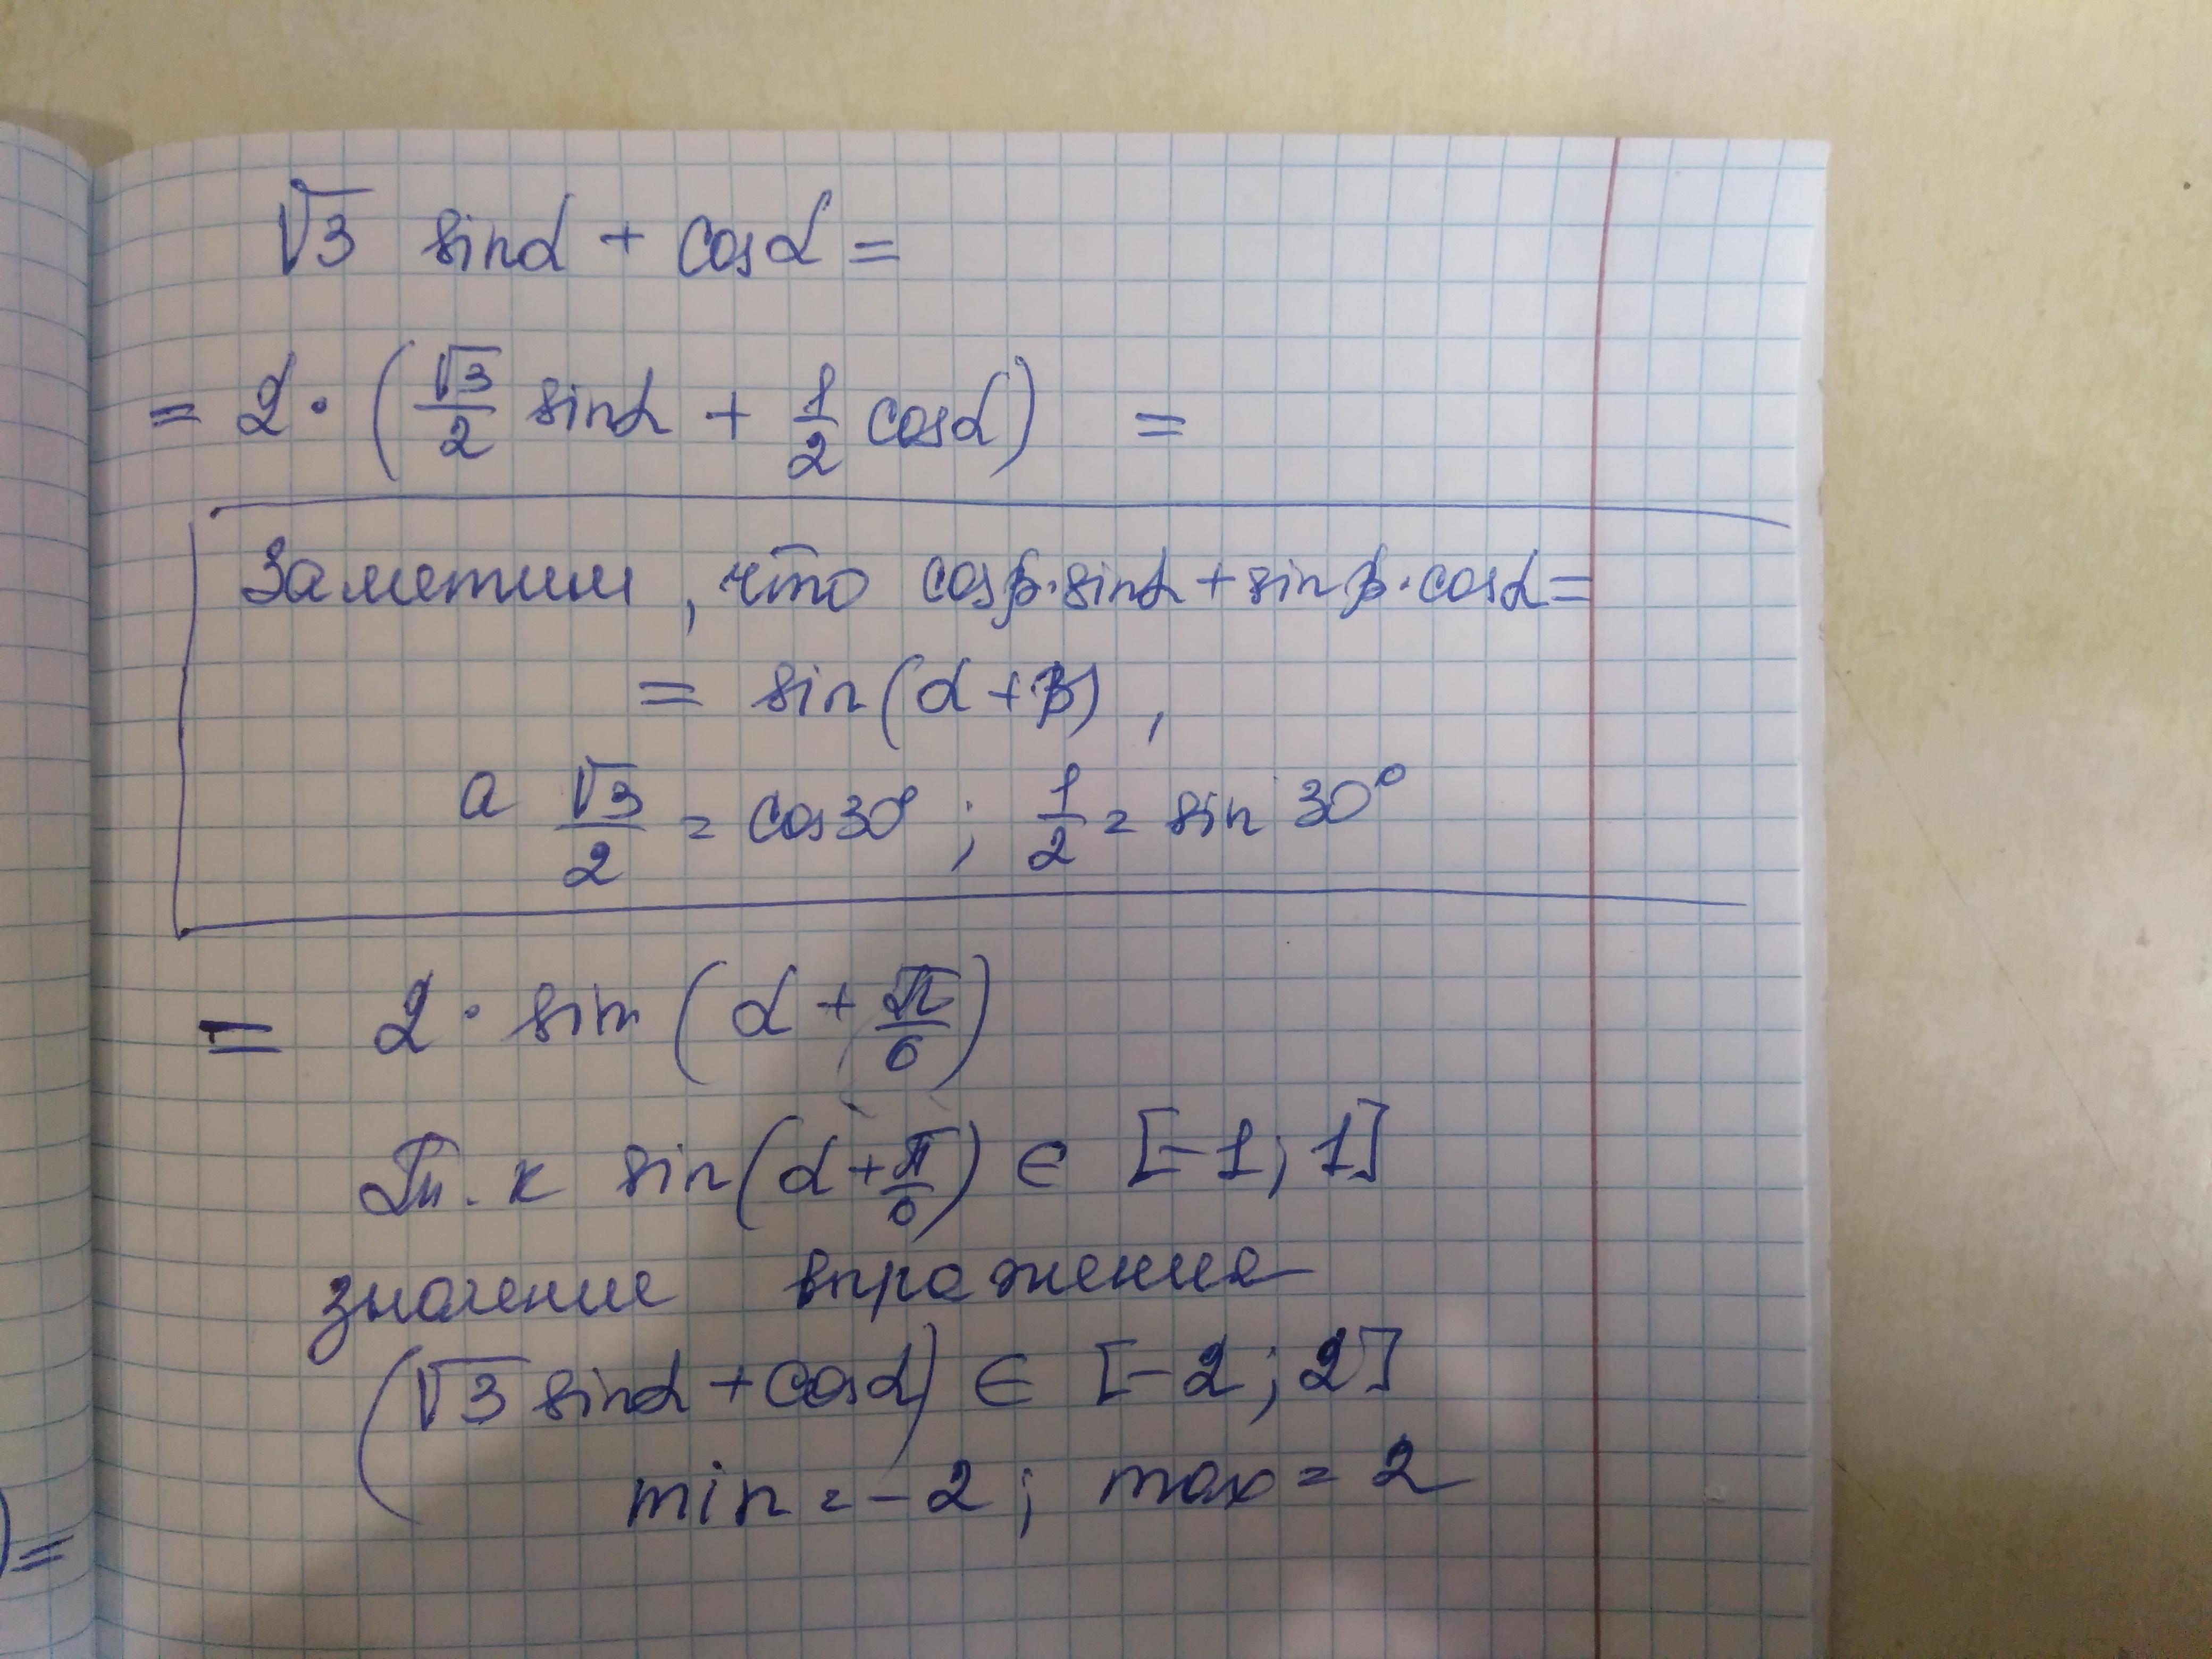 √3 sinα + cosα =
= 2 · (√3/2 sinα + 1/2 cosα) =
Заметим, что cosβ·sinα + sinβ·cosα =
= sin(α + β),
а √3/2 = cos30°; 1/2 = sin 30°
= 2 · sin (α + π/6)
Т.к sin(α + π/6) ∈ [-1; 1]
значение выражения
(√3 sinα + cosα) ∈ [-2; 2]
min = -2; max = 2
)=